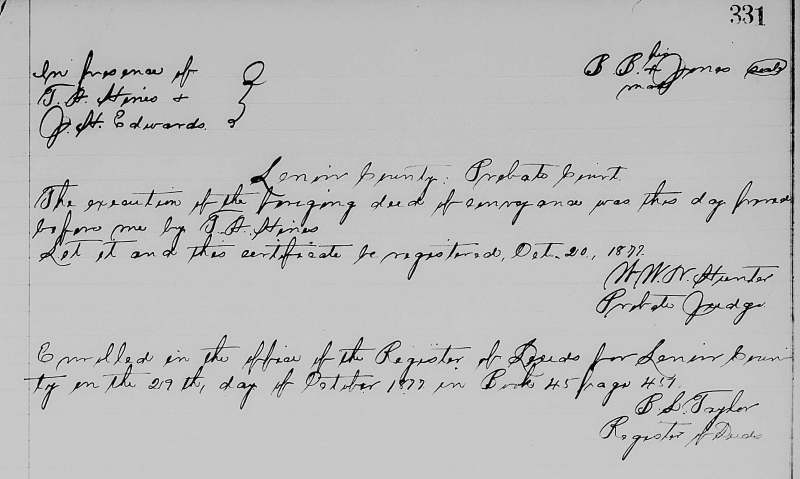 331
In presence of
T. H. Hines &
J. H. Edwards
B. B. his x mark Jones (seal)
Lenoir County: Probate Court
The execution of the foregoing deed of conveyance was this day proved
before me by T. H. Hines
Let it and this certificate be registered, Oct. 20, 1877.
W. W. N. Hunter
Probate Judge
Enrolled in the office of the Register of Deeds for Lenoir Coun
ty on the 29th, day of October 1877 in Book 45 page 457
B. L. Taylor
Register of Deeds